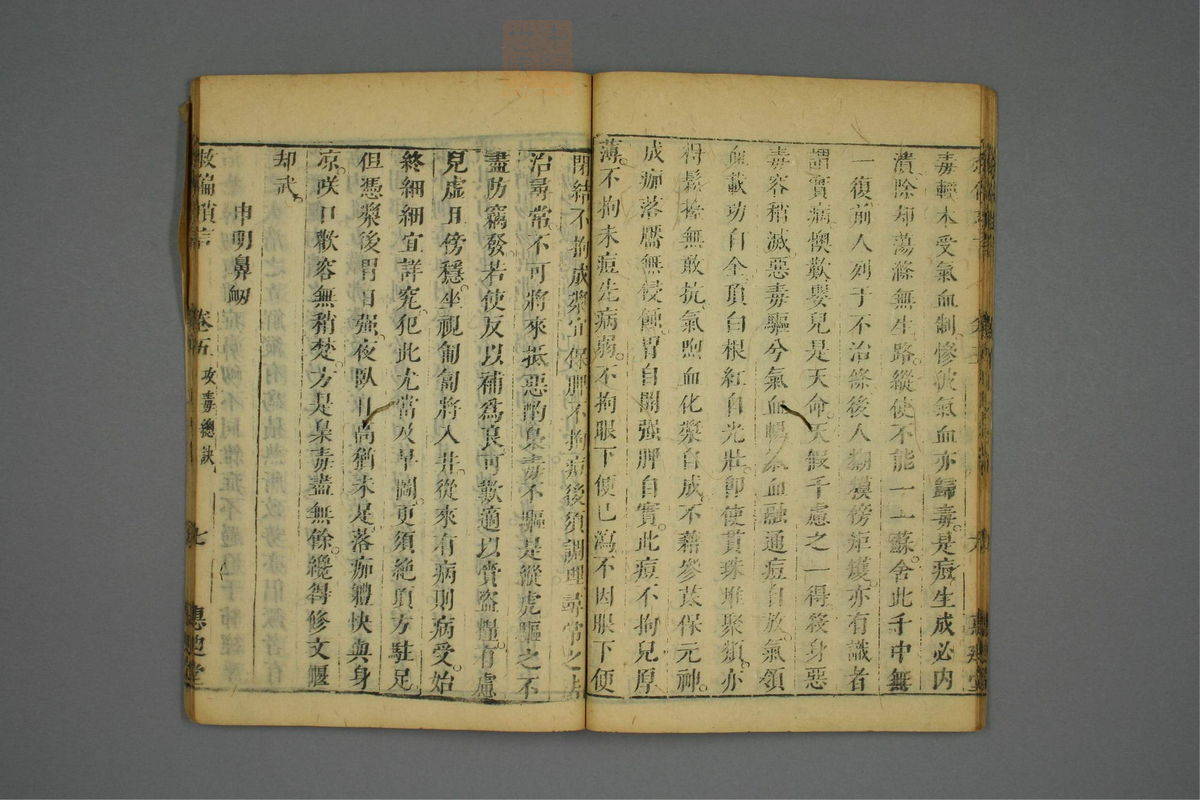 毒輕本受氣血制慘彼氣血亦歸毒。是痘生成必內
潰除却蕩滌無生路。縱使不能一一蘇舍此手中無
一復前人列于不治條後人糊模傍矩矱。亦有識者
謂實病懊歎嬰兒是天命。天假千慮之一得後身惡
毒容稍滅。惡毒驅兮氣血暢氣血融通痘自放氣領
血載功自全。頂白根紅自光壯。卽使貫珠堆聚類。亦
得鬆擡無敢抗。氣煦血化漿自成。不藉參芪保元神。
成痂落靨無侵蝕。胃自開强脾自實。此痘不拘兒厚
薄。不拘未痘先病弱。不拘眼下便已瀉不因眼下便
閉結不拘成漿宜保脾不拘痘後須調理尋常之
治尋常。不可將來抵惡酌。梟毒不驅是縱虎驅之不
盡防竊發若使反以補爲良。可歎適以賫盜糧。有慮
兒虛且傍穩。坐視匍匐將入井。從來有病則病受。始
終細細宜詳究。犯此尤當及早圖。更須絶頂方駐足。
但憑漿後胃日强。夜臥日尚猶未是。落痂軆快與身
凉。咲口歡容無稍楚。方是梟毒盡無餘。纔得修文偃
却武。
申明鼻衂
救偏瑣言
卷五
攻毒總訣
七
惠迪堂